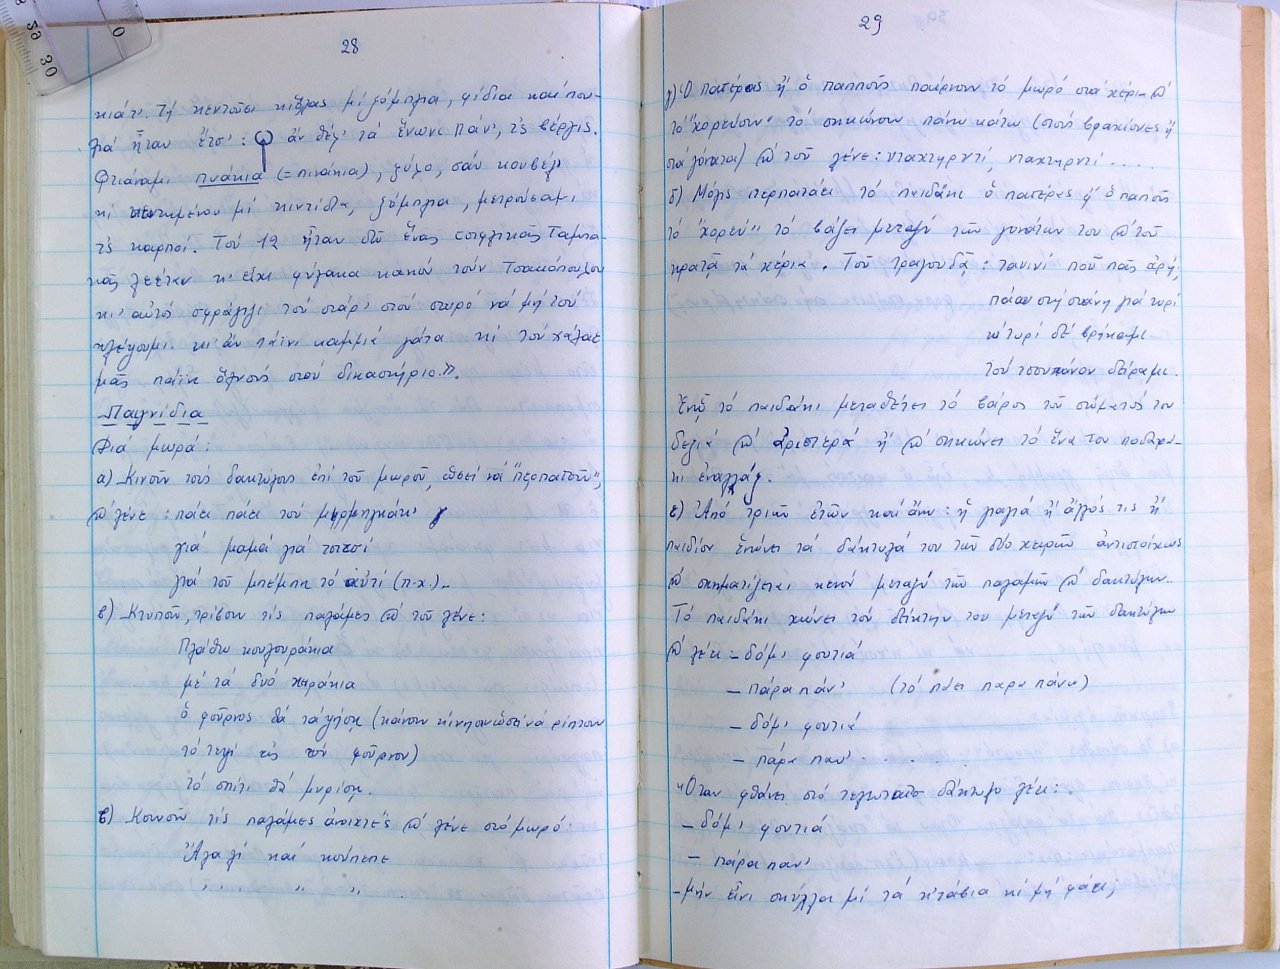 28
κιάτ'. Τή κεντούσι κιόλας μί ξόμπλια, φίδια καί που-
λιά ἦταν ἔτσ': ἀν θέλ' τά ἕνωνι πάν', τς βέργις.
Φτιάναμι πνάκια (= πινάκια), ξύλο, σάν κουβέλι
κί κεντημένου μί κιντίδια, ξόμπλια, μετρούσαμι
τς καρποί. Τού 12 ἦταν δῶ ἕνας
κάς λεέταν κ' εἶχι φύλακα κακόν τούν Τσακόπουλου
κι' αὐτό σφράγιζι τού στάρ' στού σωρό νά μή τού
κλέψουμι. κι ἄν πάινι καμμιά γάτα κι τού χάλαε
μᾶς πάινε ὅλνούς στού δικαστήριο.».
Παιγνίδια
Διά μωρά:
α) Κινοῦν τούς δακτύλους ἐπί τοῦ μωροῦ, ὡσεί νά "περπατοῦν",
κ' λένε: πάει πάει τού μυρμηγκάκι
γιά μαμά γιά τσιτσί
γιά τοῦ μπέμπη τό αὐτί (π.χ.)
β) Κτυποῦν, τρίβουν τίς παλάμες κ' τοῦ λένε:
Πλάθω κουλουράκια
μέ τά δυό χεράκια
ὁ φοῦρνος θά τά ψήση (κάνουν κίνησιν ὡσεί νά ρίπτουν
τό ταψί εἰς τόν φοῦρνον)
τό σπίτι θά μυρίση.
β) Κουνοῦν τίς παλάμες ἀνοικτές κ' λένε στό μωρό:
Ἀλαλί καί κούπεπε
" " " "
29
γ) Ὁ Πατέρας ἤ ὁ παππούς παίρνουν τό μωρό στά χέρια κ'
τό "χορεύουν" τό σηκώνουν πάνω κάτω (στούς βραχίονες ἤ
στά γόνατα) κ' τοῦ λένε: νταχτιρντί, νταχτιρντί....
δ) Μόλις περπατάει τό παιδάκι ὁ πατέρας ἤ ὁ παππούς
τό "χορεύ'" τό βάζει μεταξύ τῶν γονάτων του κ' τοῦ
κρατᾶ τά χέρια. Τοῦ τραγουδᾶ: τανινί ποῦ πᾶς ἀρή,
πάου στή στάνη γιά τυρί
κι τυρί δέ βρίκαμι
τού τσουπάνου δείραμι.
Ἐνῶ τό παιδάκι μεταθέτει τό βάρος τοῦ σώματός του
δεξιά κ' ἀριστερά ἤ κ' σηκώνει τό ἕνα του ποδαρά-
κι ἐναλλάξ.
ε) Ἀπό τριῶν ἐτῶν καί ἄνω: ἡ γιαγιά ἤ ἄλλος τις ἤ
παιδίον ἑνώνει τά δάκτυλά του τῶν δύο χειρῶν ἀντιστοίχως
κ' σχηματίζεται κενόν μεταξύ τῶν παλαμῶν κ' δακτύλων.
Τό παιδάκι χώνει τόν δείκτην του μεταξύ τῶν δακτύλων
κ' λέει – δόμ' φουτιά
– πάρα πάν' (τό πάει παρα πάνω)
– δόμ' φουτιά
– πάρα παν'.
Ὅταν φθάνει στό τελευταῖο δάκτυλο λέει:
– δόμ' φουτιά
– πάρα παν'
– μήν εἶνι σκύλλοι μί τά κ'τάβια κί μή φάει;